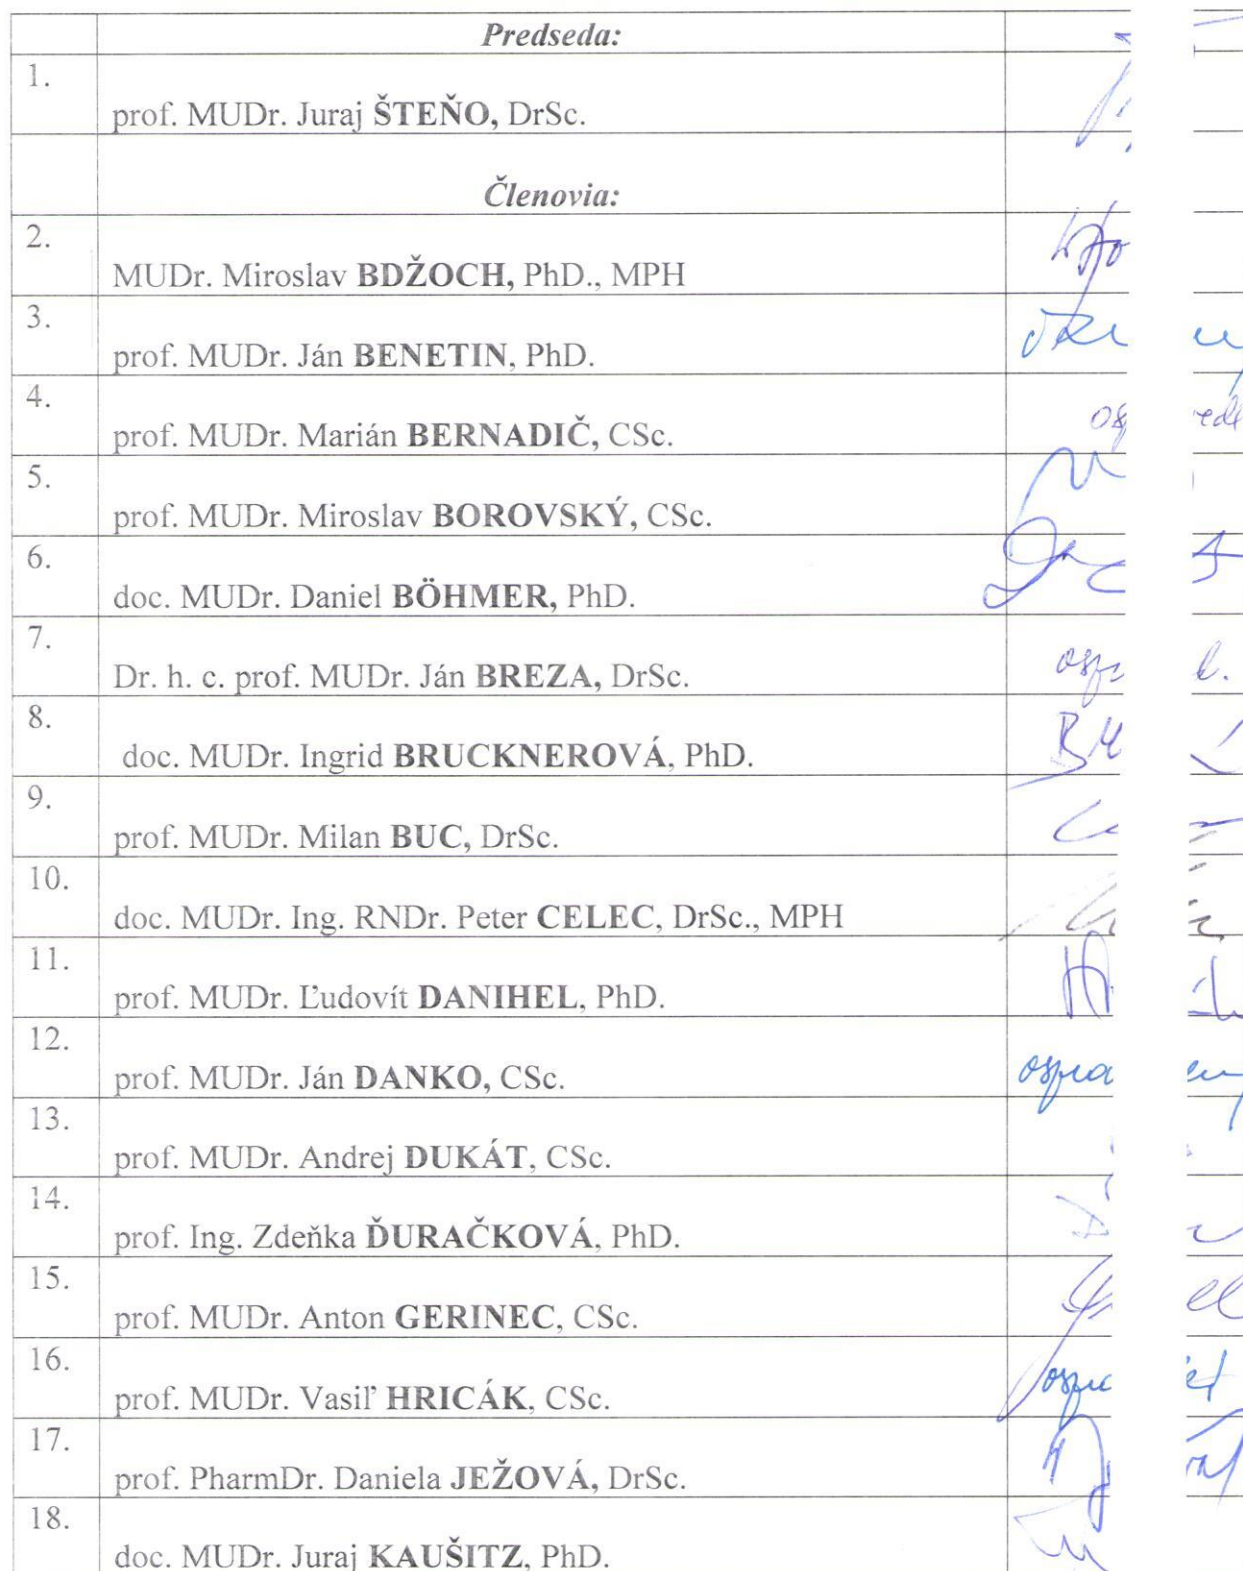 Predseda:
1.
prof. MUDr. Juraj ŠTEŇO, DrSc.
Členovia:
2.
MUDr. Miroslav BDŽOCH, PhD., MPH
3.
prof. MUDr. Ján BENETIN, PhD.
4.
prof. MUDr. Marián BERNADIČ, CSc.
5.
prof. MUDr. Miroslav BOROVSKÝ, CSc.
6.
doc. MUDr. Daniel BÖHMER, PhD.
7.
Dr. h. c. prof. MUDr. Ján BREZA, DrSc.
8.
doc. MUDr. Ingrid BRUCKNEROVÁ, PhD.
9.
prof. MUDr. Milan BUC, DrSc.
10.
doc. MUDr. Ing. RNDr. Peter CELEC, DrSc., MPH
11.
prof. MUDr. Ľudovít DANIHEL, PhD.
12.
prof. MUDr. Ján DANKO, CSc.
13.
prof. MUDr. Andrej DUKÁT, CSc.
14.
prof. Ing. Zdeňka ĎURAČKOVÁ, PhD.
15.
prof. MUDr. Anton GERINEC, CSc.
16.
prof. MUDr. Vasiľ HRICÁK, CSc.
17.
prof. PharmDr. Daniela JEŽOVÁ, DrSc.
18.
doc. MUDr. Juraj KAUŠITZ, PhD.